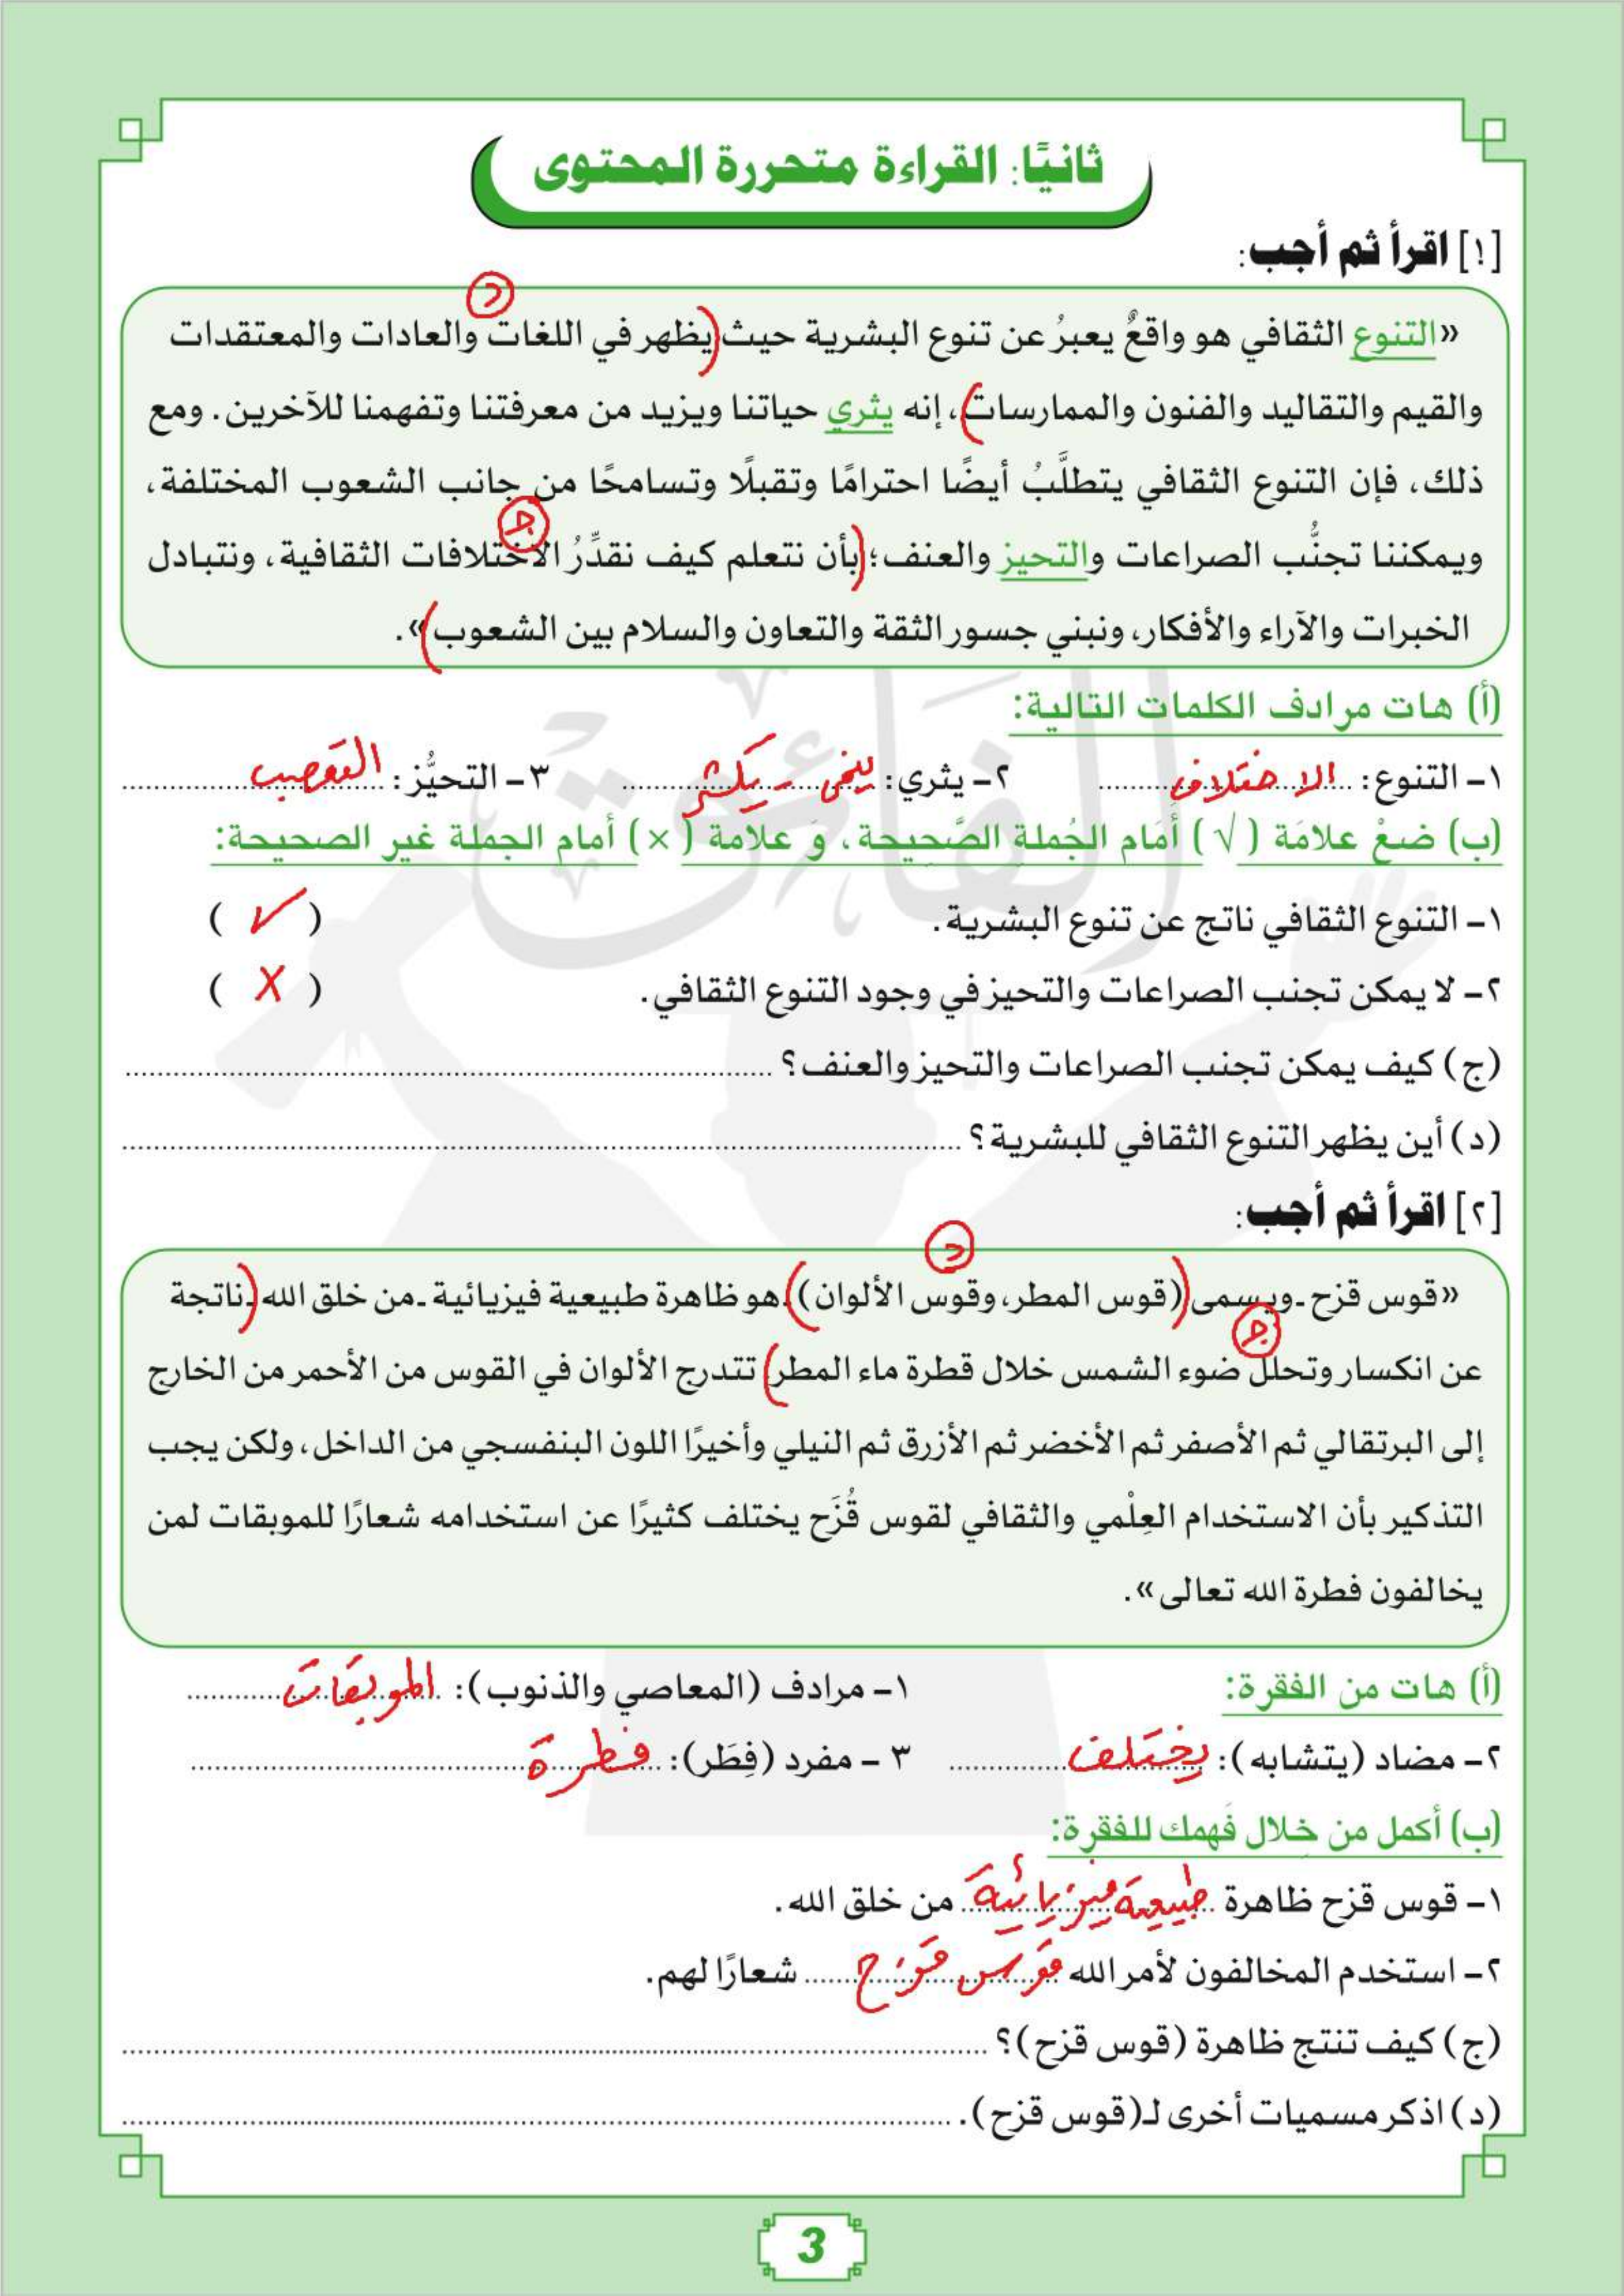 ثانيًا: القراءة متحررة المحتوى
[١] اقرأ ثم أجب:
د
«التنوع الثقافي هو واقعٌ يعبرُ عن تنوع البشرية حيث (يظهر في اللغات والعادات والمعتقدات
والقيم والتقاليد والفنون والممارسات)، إنه يثري حياتنا ويزيد من معرفتنا وتفهمنا للآخرين. ومع
ذلك، فإن التنوع الثقافي يتطلَّبُ أيضًا احترامًا وتقبلًا وتسامحًا من جانب الشعوب المختلفة،
جـ
ويمكننا تجنُّب الصراعات والتحيز والعنف؛ (بأن نتعلم كيف نقدِّرُ الاختلافات الثقافية، ونتبادل
الخبرات والآراء والأفكار، ونبني جسور الثقة والتعاون والسلام بين الشعوب)».
(أ) هات مرادف الكلمات التالية:
١- التنوع: الاختلاف ٢- يثري: ينمى - يكثر ٣- التحيُّز: التعصب
(ب) ضعْ علامَة (√) أَمَام الجُملة الصَّحِيحة، وَ علامة (×) أمام الجملة غير الصحيحة:
١- التنوع الثقافي ناتج عن تنوع البشرية. (✓)
٢- لا يمكن تجنب الصراعات والتحيز في وجود التنوع الثقافي. (X)
(ج) كيف يمكن تجنب الصراعات والتحيز والعنف؟
(د) أين يظهر التنوع الثقافي للبشرية؟
[٢] اقرأ ثم أجب:
د
«قوس قزح ـ ويسمى ((قوس المطر، وقوس الألوان)) ـ هو ظاهرة طبيعية فيزيائية ـ من خلق الله ـ (ناتجة
جـ
عن انكسار وتحلل ضوء الشمس خلال قطرة ماء المطر) تتدرج الألوان في القوس من الأحمر من الخارج
إلى البرتقالي ثم الأصفر ثم الأخضر ثم الأزرق ثم النيلي وأخيرًا اللون البنفسجي من الداخل، ولكن يجب
التذكير بأن الاستخدام العِلْمي والثقافي لقوس قُزَح يختلف كثيرًا عن استخدامه شعارًا للموبقات لمن
يخالفون فطرة الله تعالى».
(أ) هات من الفقرة: ١- مرادف (المعاصي والذنوب): الموبقات
٢- مضاد (يتشابه): يختلف ٣ - مفرد (فِطَر): فطرة
(ب) أكمل من خلال فَهمك للفقرة:
١- قوس قزح ظاهرة طبيعية فيزيائية من خلق الله.
٢- استخدم المخالفون لأمر الله قوس قزح شعارًا لهم.
(ج) كيف تنتج ظاهرة (قوس قزح)؟
(د) اذكر مسميات أخرى لـ(قوس قزح).
الفائق
3